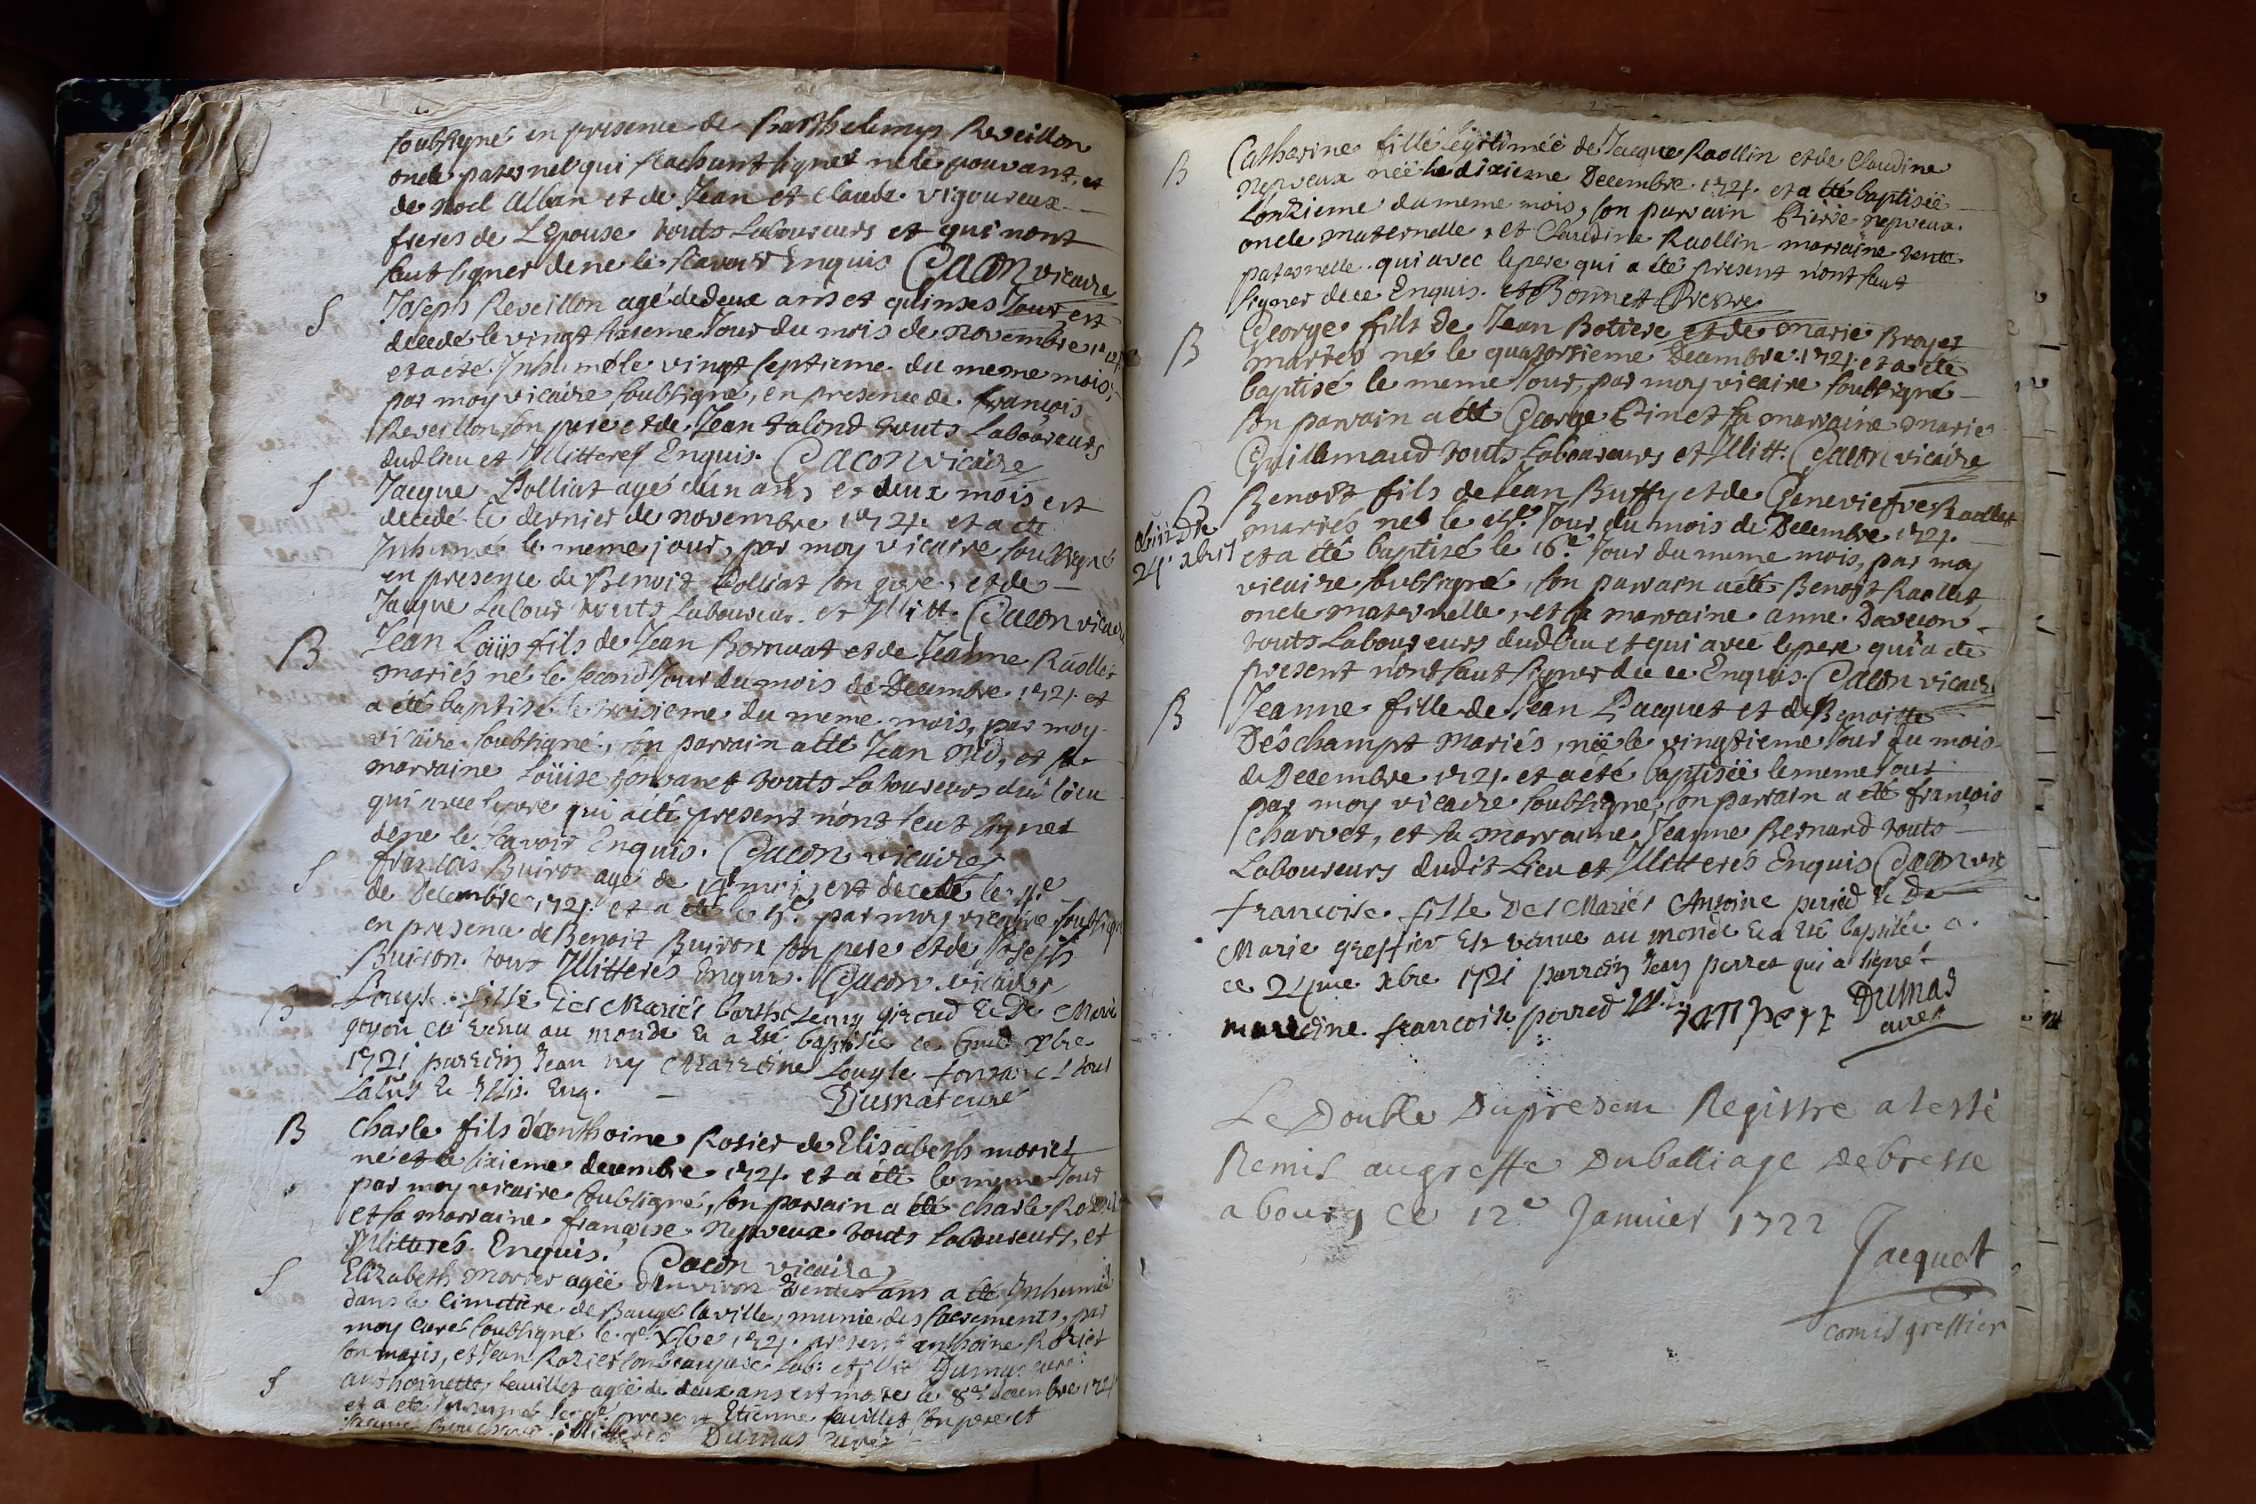 soubsigné en presence de Barthelemy Reveillon
oncle paternel qui scachant signer ne le pouvant, et
de noel Alban et de Jean et Claude vigoureux
freres de L'epouse touts Laboureurs et qui n'ont
sceut signer de ne le scavoir Enquis Gacon vicaire
S Joseph Reveillon agé de deux ans et quinses Jour est
decedé le vingt sixieme Jour du mois de novembre 1721
et a eté Inhumé le vingt septieme du meme mois,
par moy vicaire soubsigné, en presence de françois
Reveillon son pere et de Jean talond touts Laboureurs
dud lieu et Illitteres Enquis. Gacon vicaire
S Jacque Bolliat agé d'un ans et deux mois est
decedé le dernier de novembre 1721. et a eté
Inhumé le meme jour, par moy vicaire soubsigné
en presence de Benoit Bolliat son pere, et de
Jacque Lalour touts Laboureur. et Illitt. Gacon vicaire
B Jean Loüis fils de Jean Bornuat et de Jeanne Raollet
mariés né le second Jour du mois de Decembre 1721 et
a été baptisé le troisieme du meme mois, par moy
vicaire soubsigné, son parrain a été Jean, et sa
marraine Loüise touts Laboureurs dud lieu
qui avec le pere qui a été present n'ont sceut signer
de ne le scavoir Enquis. Gacon vicaire
S françois Buiron agé de mois est decedé le 4e
de Decembre 1721. et a eté le 5e par moy vicaire soubsigné
en presence de Benoit Buiron son pere et de Joseph
Buiron. tous Illitterés Enquis. Gacon vicaire
B Louyse fille des Mariés barthelemy giroud Et De Marie
goyon est venu au monde Et a Eté baptisée ce 6me xbre
1721 parrein Jean ny Marreine Louyse tous
Labrs Et Illit. Enq. Dumas curé
B Charle fils d'anthoine Rosier de Elisabeth morier
né et le sixieme decembre 1721. et a été le meme Jour
par moy vicaire soubsigné, son parrain a été Charle
et sa marraine françoise nepveux touts Laboureurs, et
Illitterés Enquis. Gacon vicaire
S Elizabeth morier ageë d'environ trente ans a été Inhumée
dans le Cimetiere de Baugé la ville, munie des sacrements, par
moy curé soubsigné le 7e xbre 1721. present anthoine Rozier
son maris, et Jean Rozier son beaupere Lab: et Illit Dumas curé
S anthoinette feuillet ageë de deux ans est morte le 8e decembre 1721
et a eté Inhumé le 9e present Etienne feuillet son pere et
illitterés Dumas curé
B Catherine fille legitimeë de Jacque Raollin et de Claudine
nepveux neë le dixiesme Decembre 1721. et a été baptiseë
L'onzieme du meme mois, son parrain Pierre nepveux
oncle maternelle, et Claudine Raollin marraine tente
paternelle qui avec le pere qui a été present n'ont sceut
signer de ce Enquis. Bonnet Prestre
B George fils de Jean Botiere et de marie Broyer
mariés né le quatorsieme Decembre 1721. et a été
baptisé le meme Jour, par moy vicaire soubsigné
son parrain a été George Pin et sa marraine marie
Guillemaud touts Laboureurs et Illitt. Gacon vicaire
B Benoit fils de Jean Buffy et de Geneviefve Raollet
obiit Die
24. xbris
mariés né le Jour du mois de Decembre 1721.
et a été baptisé le 16e Jour du meme mois, par moy
vicaire soubsigné, son parrain a été Benoit Raollet
oncle maternelle, et sa marraine anne Davecon
touts Laboureurs dud lieu et qui avec le pere qui a été
present n'ont sceut signer de ce Enquis. Gacon vicaire
B Jeanne fille de Jean Pacquet et de Benoitte
Deschampt mariés, neë le vingtieme Jour du mois
de Decembre 1721. et a été baptiseë le meme Jour
par moy vicaire soubsigné, son parrain a été françois
Charvet, et sa marraine Jeanne Bernard touts
Laboureurs dudit Lieu et Illitterés Enquis Gacon vic
francoise fille Des Mariés Antoine peried Et De
Marie greffier Est venue au monde Et a Eté baptisée
ce 24me xbre 1721 parrein Jean perret qui a signé
mareine francoise perred Ill. Jan peret Dumas
curé
Le Double Du present Registre a testé
Remis au greffe Du balliage De bresse
a bourg ce 12e Janvier 1722
Jacquet
comis greffier